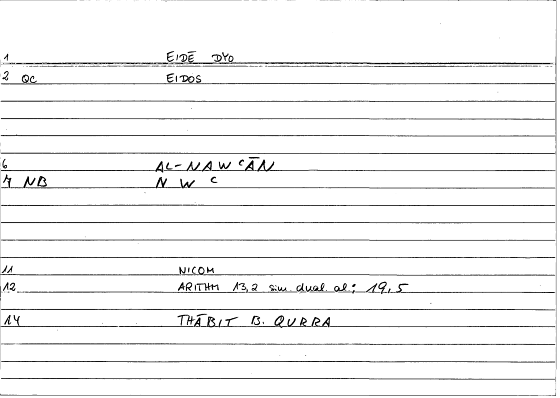 1 EIDĒ DYO
2 QC EIDOS
6 AL-NAWᶜĀN
7 NB N W ᶜ
11 NICOM
12 ARITHM 13,2 sim. dual. al; 19,5
14 THĀBIT B. QURRA